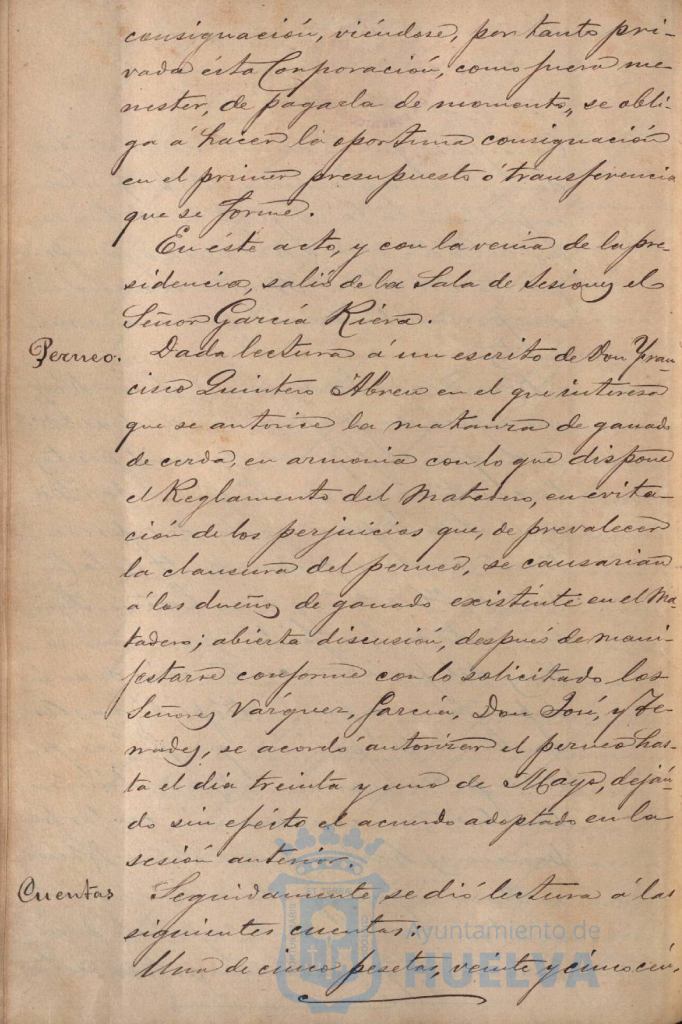 consignación, viéndose, por tanto pri-
vada ésta Corporación, como fuera me-
nester, de pagarla de momento, se obli-
ga á hacer la oportuna consignación
en el primer presupuesto ó transferencia
que se forme.
En éste acto, y con la venia de la pre-
sidencia, salió de la Sala de Sesiones el
Señor García Riera.
Perneo.
Dada lectura á un escrito de Don Fran-
cisco Quintero Abreu en el que interesa
que se autorice la matanza de ganado
de cerda, en armonia con lo que dispone
el Reglamento del Matadero, en evita-
ción de los perjuicios que, de prevalecer
la clausura del perneo, se causarian
á los dueños de ganado existente en el Ma-
tadero; abierta discusión, después de mani-
festarse conforme con lo solicitado los
Señores Vázquez, García, Don José, y
se acordó autorizar el perneo has-
ta el dia treinta y uno de Mayo, deján-
do sin efécto el acuerdo adoptado en la
sesión anterior.
Cuentas
Seguidamente se dió lectura á las
siguientes cuentas:
Una de cinco pesetas, veinte y cinco cén.
Ayuntamiento de
HUELVA